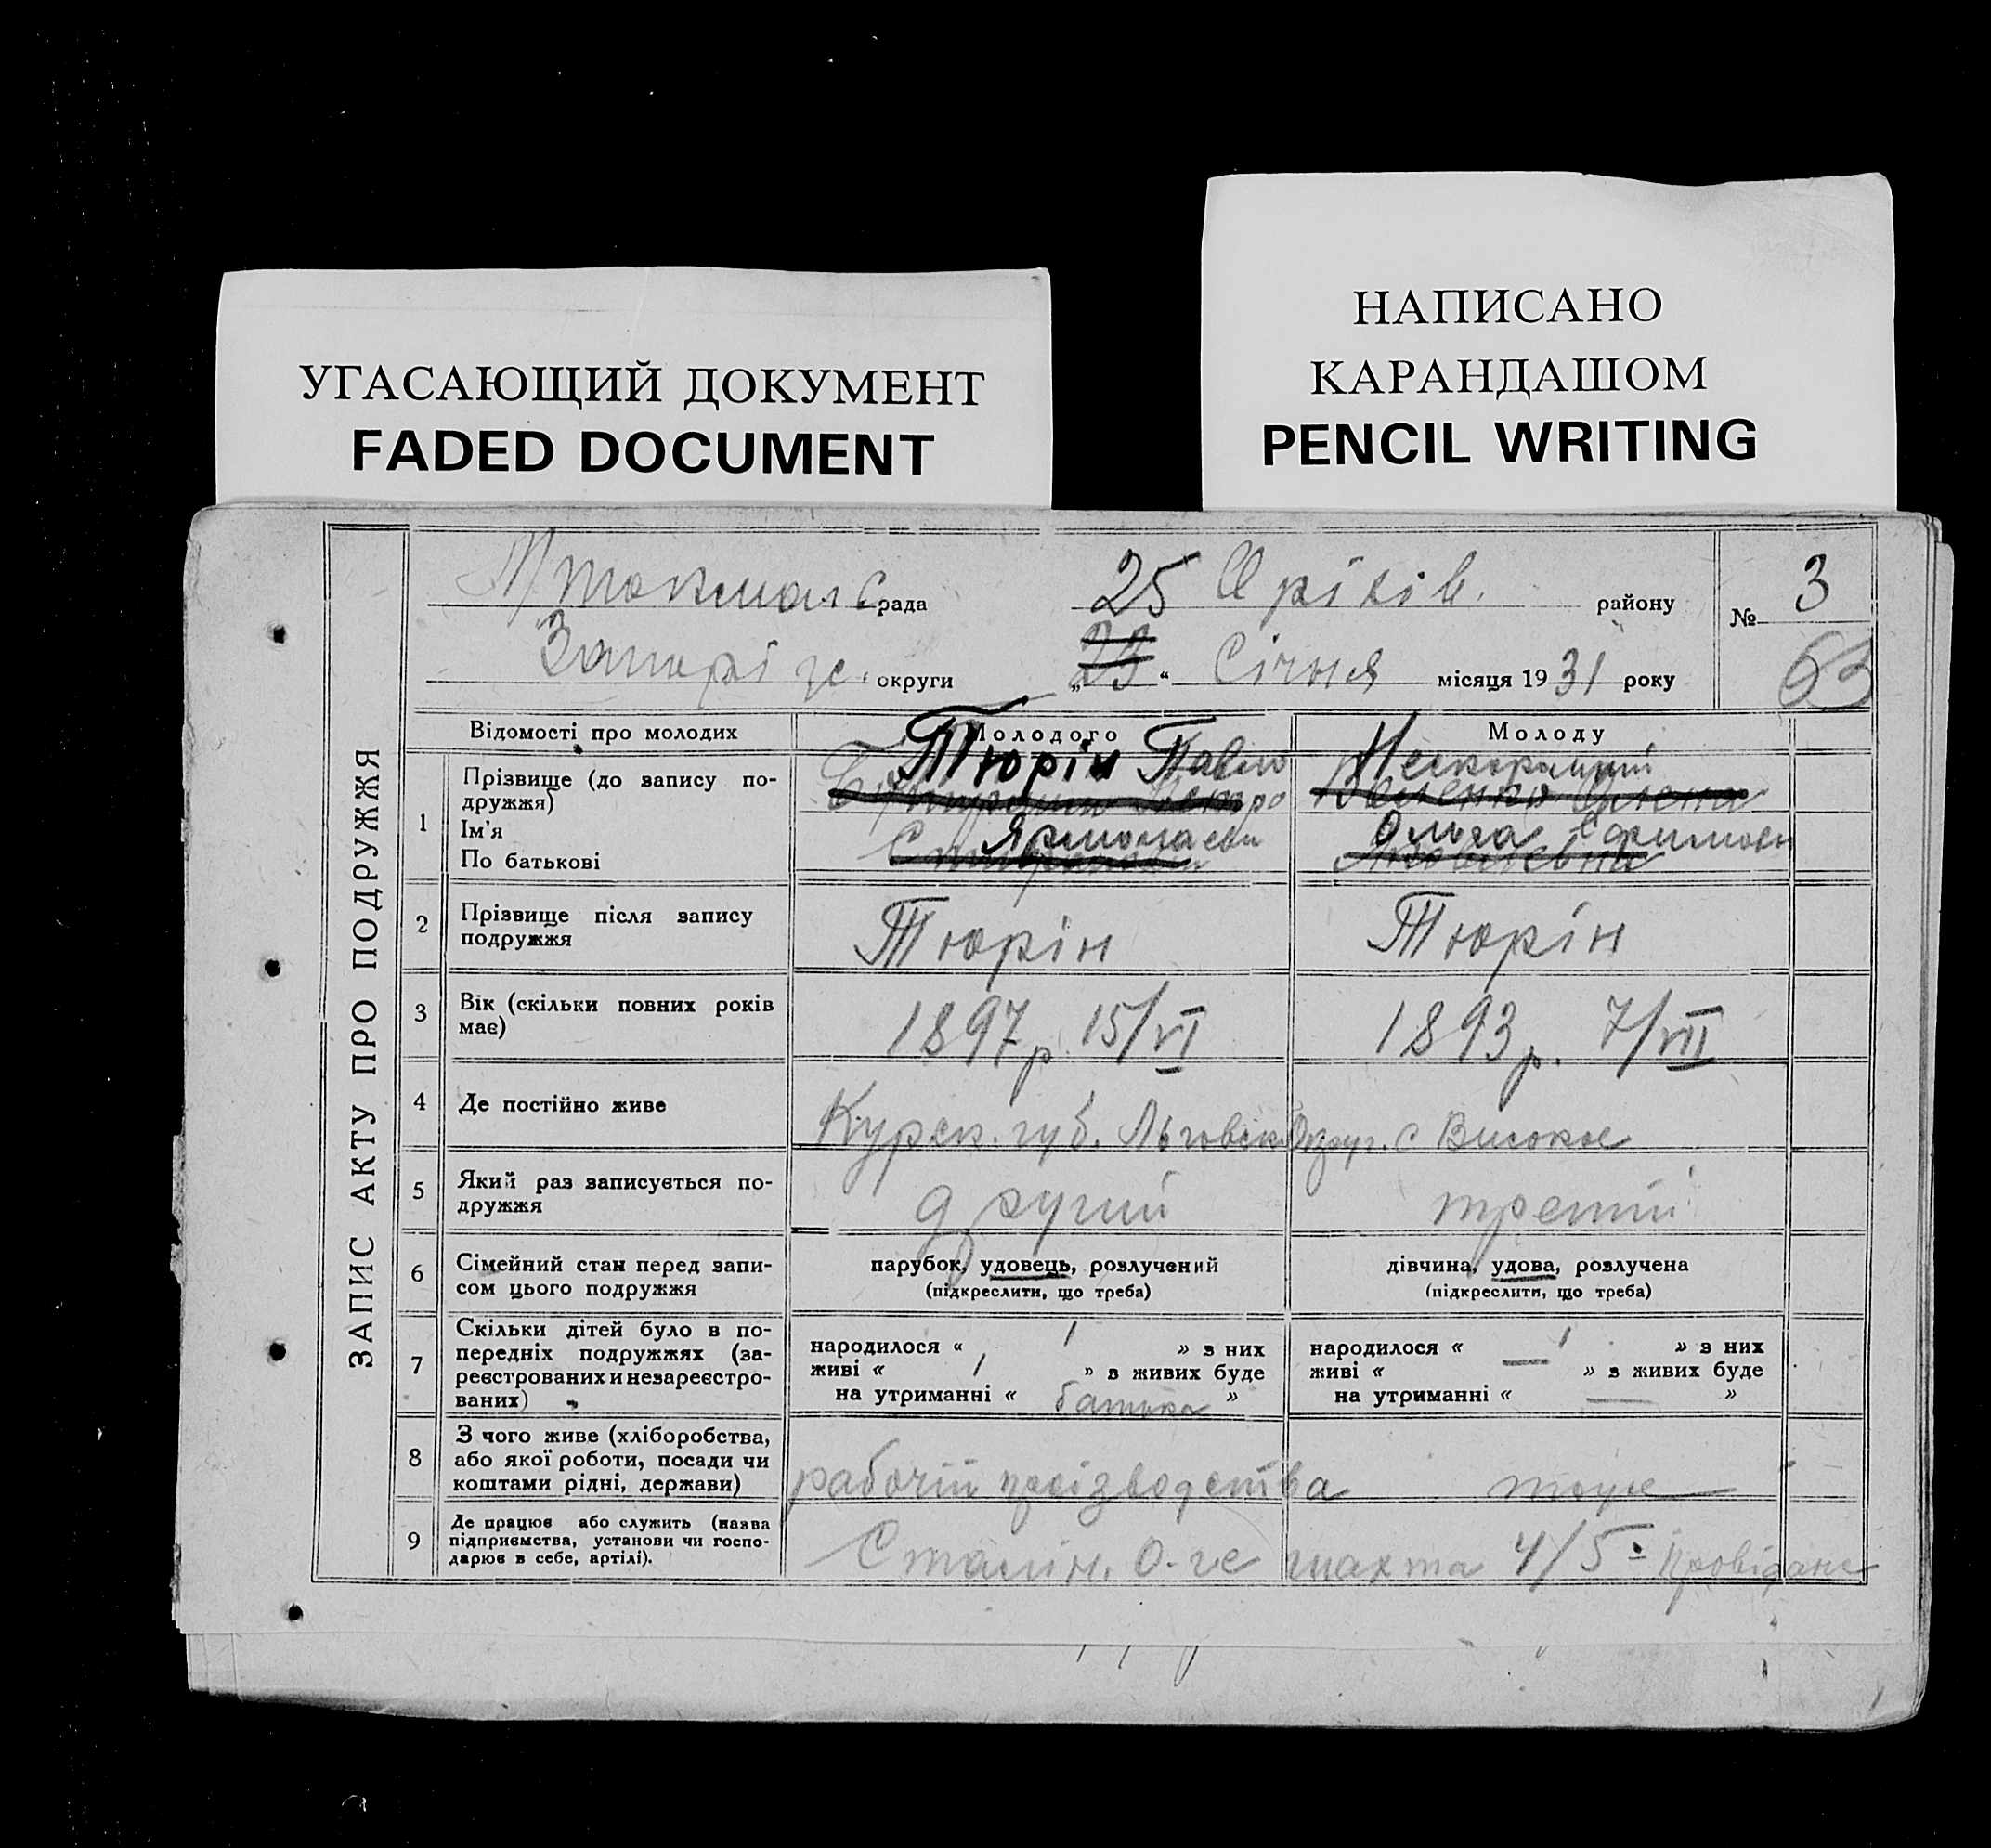 НАПИСАНО
КАРАНДАШОМ
PENCIL WRITING
УГАСАЮЩИЙ ДОКУМЕНТ
FADED DOCUMENT
ЗАПИС АКТУ ПРО ПОДРУЖЖЯ
М/токмал с рада 25 Оріхів. району № 3
Запоріж. округи „23“ Січня місяця 1931 року 63
Відомості про молодих Молодого Молоду
1 Прізвище (до запису по-
дружжя)
Ім'я
По батькові
Тюрін Павло
Ярмолаєви
Ольга
2 Прізвище після запису
подружжя
Тюрін Тюрін
3 Вік (скільки повних років
має)
1897 р 15/VI 1893 р. 7/VII
4 Де постійно живе Курск. губ. Льговск Округ. с Високое
5 Який раз записується по-
дружжя
другий третій
6 Сімейний стан перед запи-
сом цього подружжя
парубок, удовець, розлучений
(підкреслити, що треба)
дівчина, удова, розлучена
(підкреслити, що треба)
7 Скільки дітей було в по-
передніх подружжях (за-
реєстрованих и незареєстро-
ваних)
народилося « 1 » з них
живі « 1 » з живих буде
на утриманні « батька »
народилося « 1 » з них
живі « — » з живих буде
на утриманні « — »
8 З чого живе (хліборобства,
або якої роботи, посади чи
коштами рідні, держави)
рабочій проізводства тоже
9 Де працює або служить (назва
підприємства, установи чи госпо-
дарює в себе, артілі).
Сталін. о-ге шахта 4/5